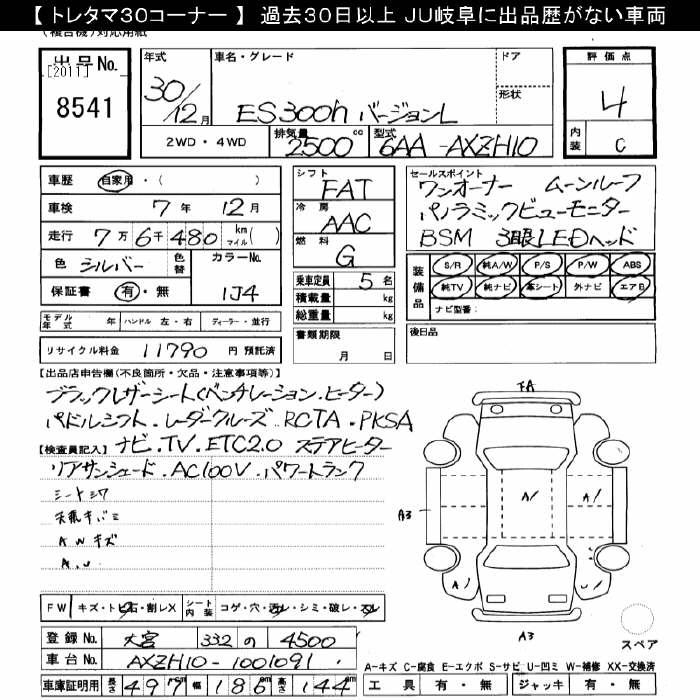 【 トレタマ30コーナー 】 過去30日以上 JU岐阜に出品歴がない車両
(複合機)対応用紙
出品No. 年式 車名・グレード ドア 評価点
[2011]
8541 30/12月 ES300h バージョンL 形状 4
2WD・4WD 排気量 2500 cc 型式 6AA-AXZH10 内装 C
車歴 自家用・( ) シフト FAT セールスポイント ワンオーナー ムーンルーフ
車検 7年 12月 冷房 AAC パノラミックビューモニター
走行 7万6千480 km マイル( ) 燃料 G BSM 3眼LEDヘッド
色 シルバー 色替 カラーNo. 1J4 乗車定員 5名 装備品 S/R 純A/W P/S P/W ABS
保証書 有・無 積載量 kg 純TV 純ナビ 革シート 外ナビ エアB
総重量 kg ナビ型番:
モデル年式 年 ハンドル 左・右 ディーラー・並行 書類期限 月 日 後日品
リサイクル料金 11790 円 預託済
【出品店申告欄(不良箇所・欠品・注意事項等)】
ブラックレザーシート(ベンチレーション.ヒーター)
パドルシフト.レーダークルーズ.RCTA.PKSA
【検査員記入】 ナビ.TV.ETC2.0 ステアヒーター
リアサンシェード.AC100V.パワートランク
シートシワ
AWキズ
A.U
FA
A1 A1
A3
A1 U1
A3
スペア
FW キズ・トビ石・割レX シート内装 コゲ・穴・汚レ・シミ・破レ・スレ
登録No. 大宮 332 の 4500
車台No. AXZH10-1001091
車庫証明用 長さ 497 cm 幅 186 cm 高さ 144 cm
A-キズ C-腐食 E-エクボ S-サビ U-凹ミ W-補修 XX-交換済
工具 有・無 ジャッキ 有・無